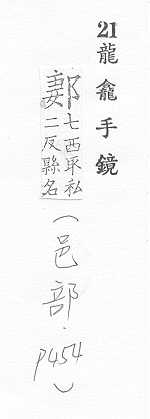 21龍龕手鏡
郪七西取私
二反縣名
（邑部．P454）